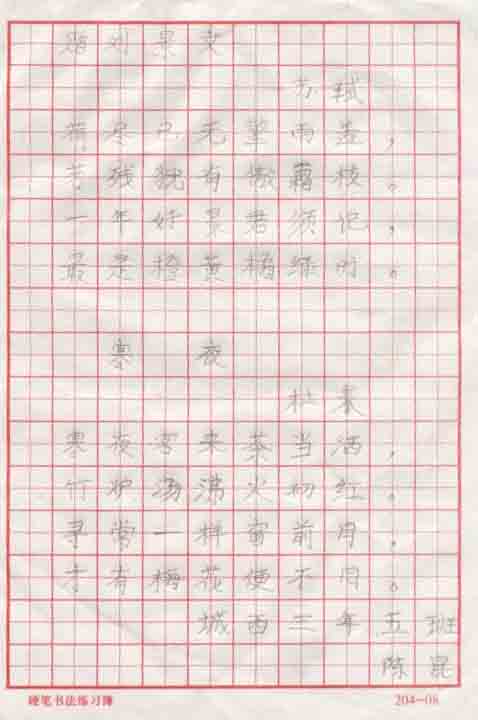 赠刘景文
苏轼
荷尽已无擎雨盖，
有傲霜枝。
一年好景君须记，
最是橙黄橘绿时。
寒夜
杜耒
寒夜客来茶当酒，
竹炉汤沸火初红。
寻常一样窗前月，
才有梅花便不同。
城西三年五班
陈昆
硬笔书法练习簿 204-08